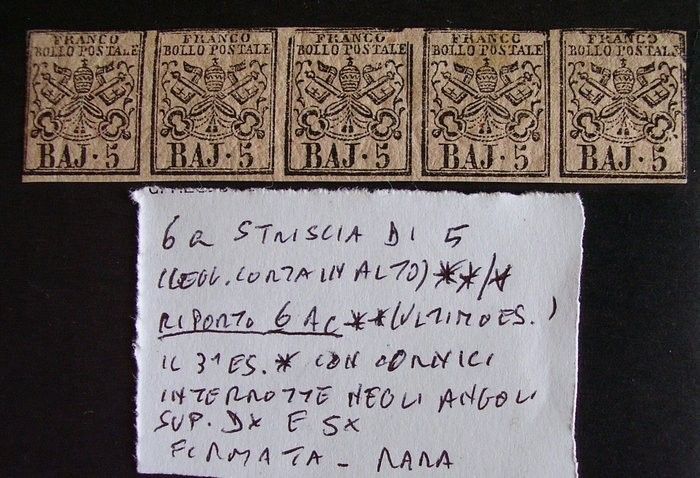 FRANCO FRANCO FRANCO FRANCO FRANCO
BOLLO POSTALE BOLLO POSTALE BOLLO POSTALE BOLLO POSTALE BOLLO POSTALE
BAJ·5 BAJ·5 BAJ·5 BAJ·5 BAJ·5
6a STRISCIA DI 5
(LEGG. CORTA IN ALTO) **/*
RIPORTO 6Ac **(ULTIMO ES.)
IL 3° ES. * CON CORNICI
INTERROTTE NEGLI ANGOLI
SUP. DX E SX
FIRMATA - RARA